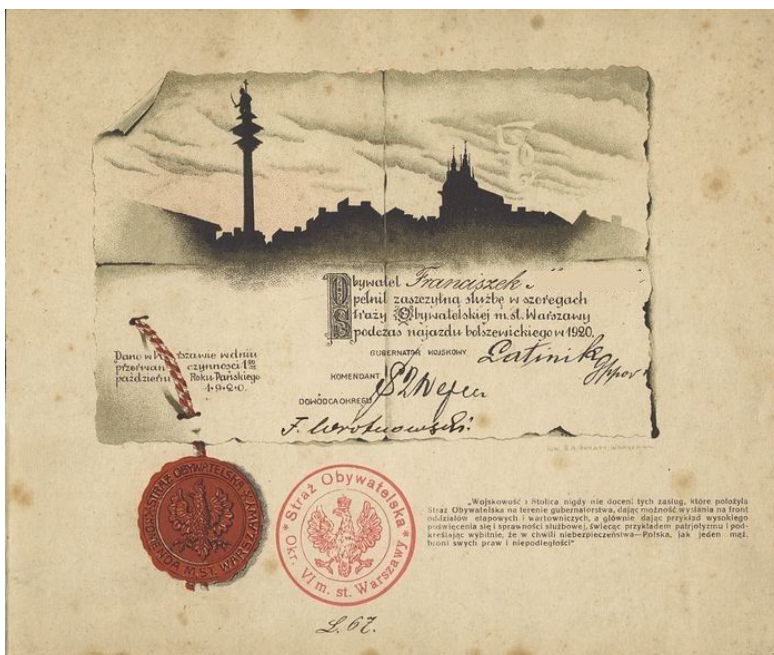 Obywatel Franciszek
pełnił zaszczytną służbę w szeregach
Straży Obywatelskiej m. st. Warszawy
podczas najazdu bolszewickiego w 1920.
GUBERNATOR WOJSKOWY Latinik
KOMENDANT
DOWÓDCA OKRĘGU
Dano w Warszawie w dniu
przerwania czynności 1go
październi Roku Pańskiego
1·9·2·0·
STRAŻ OBYWATELSKA
KOMENDA M. ST. WARSZAWY
* Straż Obywatelska *
Okr. VI m. st. Warszawy
„Wojskowość i Stolica nigdy nie doceni tych zasług, które położyła
Straż Obywatelska na terenie gubernatorstwa, dając możność wysłania na front
oddziałów etapowych i wartowniczych, a głównie dając przykład wysokiego
poświęcenia się i sprawności służbowej, świecąc przykładem patrjotyzmu i pod-
kreślając wybitnie, że w chwili niebezpieczeństwa—Polska, jak jeden mąż,
broni swych praw i niepodległości"
L. 67.